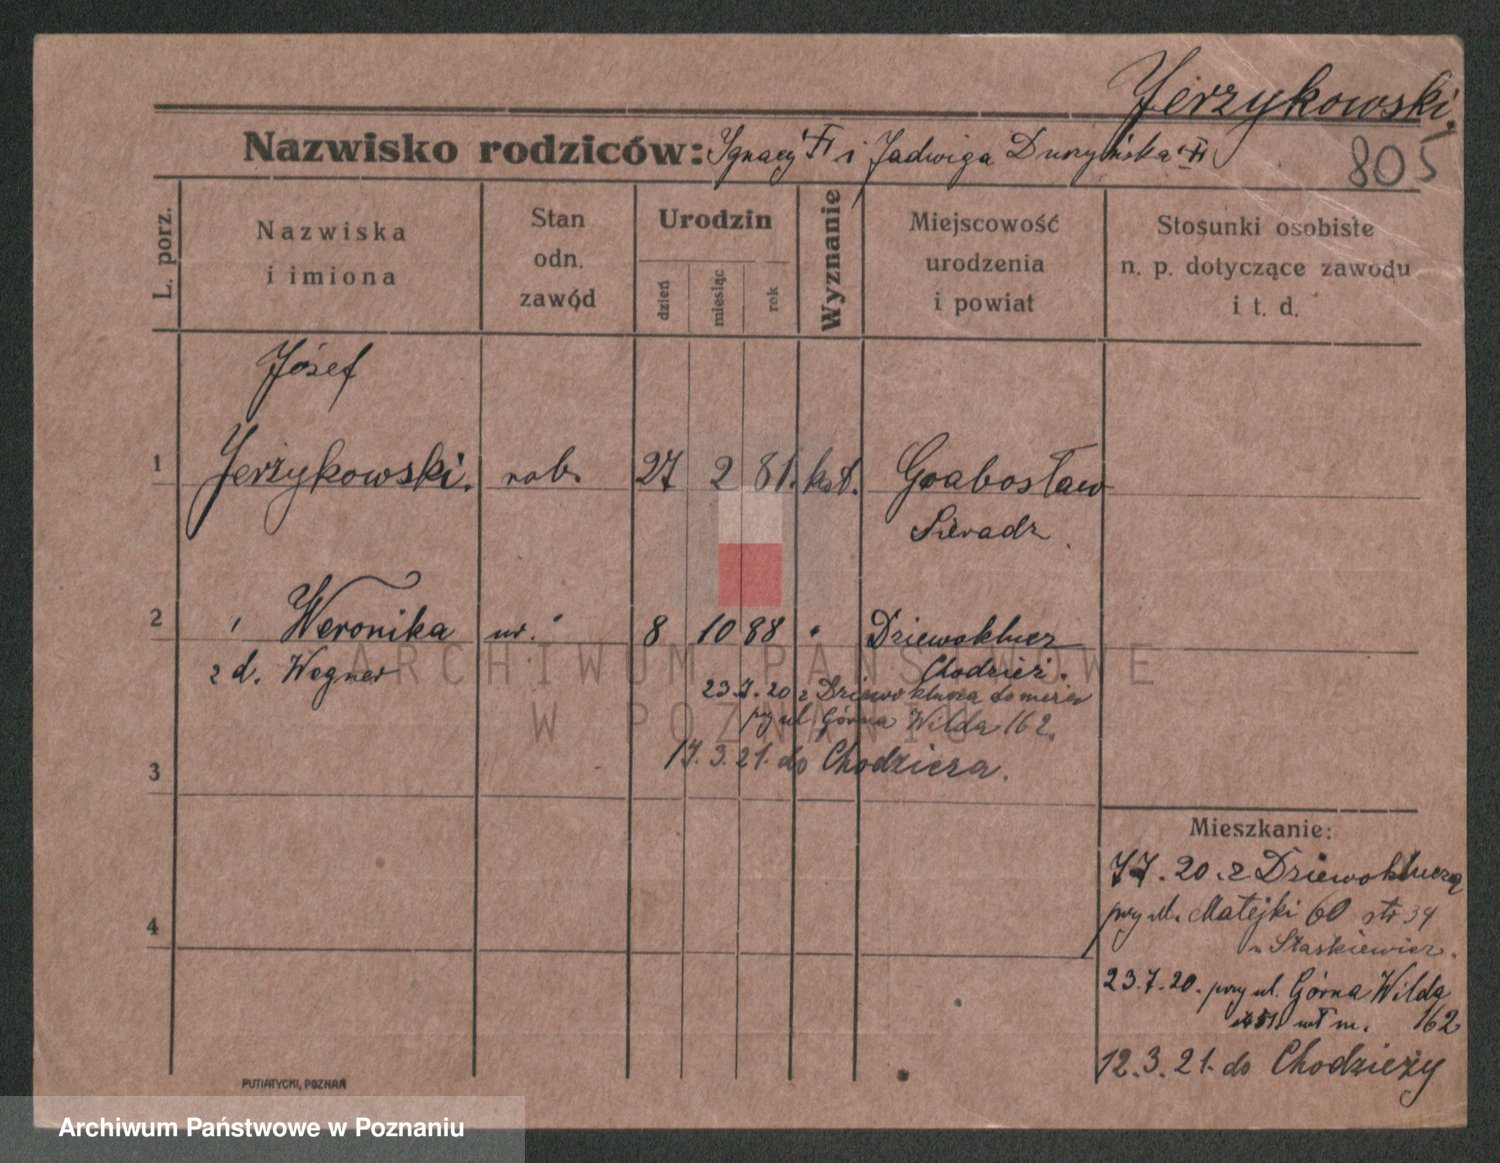 Jerzykowski.
805
Nazwisko rodziców: Ignacy i Jadwiga
L. porz.
Nazwiska
i imiona
Stan
odn.
zawód
Urodzin
dzień
miesiąc
rok
Wyznanie
Miejscowość
urodzenia
i powiat
Stosunki osobiste
n. p. dotyczące zawodu
i t. d.
Józef
1 Jerzykowski. rob. 27 2 81. kat. Goabosław
Sieradz
2 Weronika ur. " 8 10 88 " Dziewoklucz
z d. Wegner Chodzież.
23.7.20 z Dziewoklucza
przy ul Górna Wilda 162.
3 17.3.21. do Chodzieza.
4
Mieszkanie:
7.7.20. z Dziewoklucza
przy ul. Matejki 60 str 34
u Staskiewicz.
23.7.20. przy ul. Górna Wilda
m. 162
12.3.21. do Chodzieży
PUTIATYCKI, POZNAŃ
ARCHIWUM PAŃSTWOWE
W POZNANIU
Archiwum Państwowe w Poznaniu